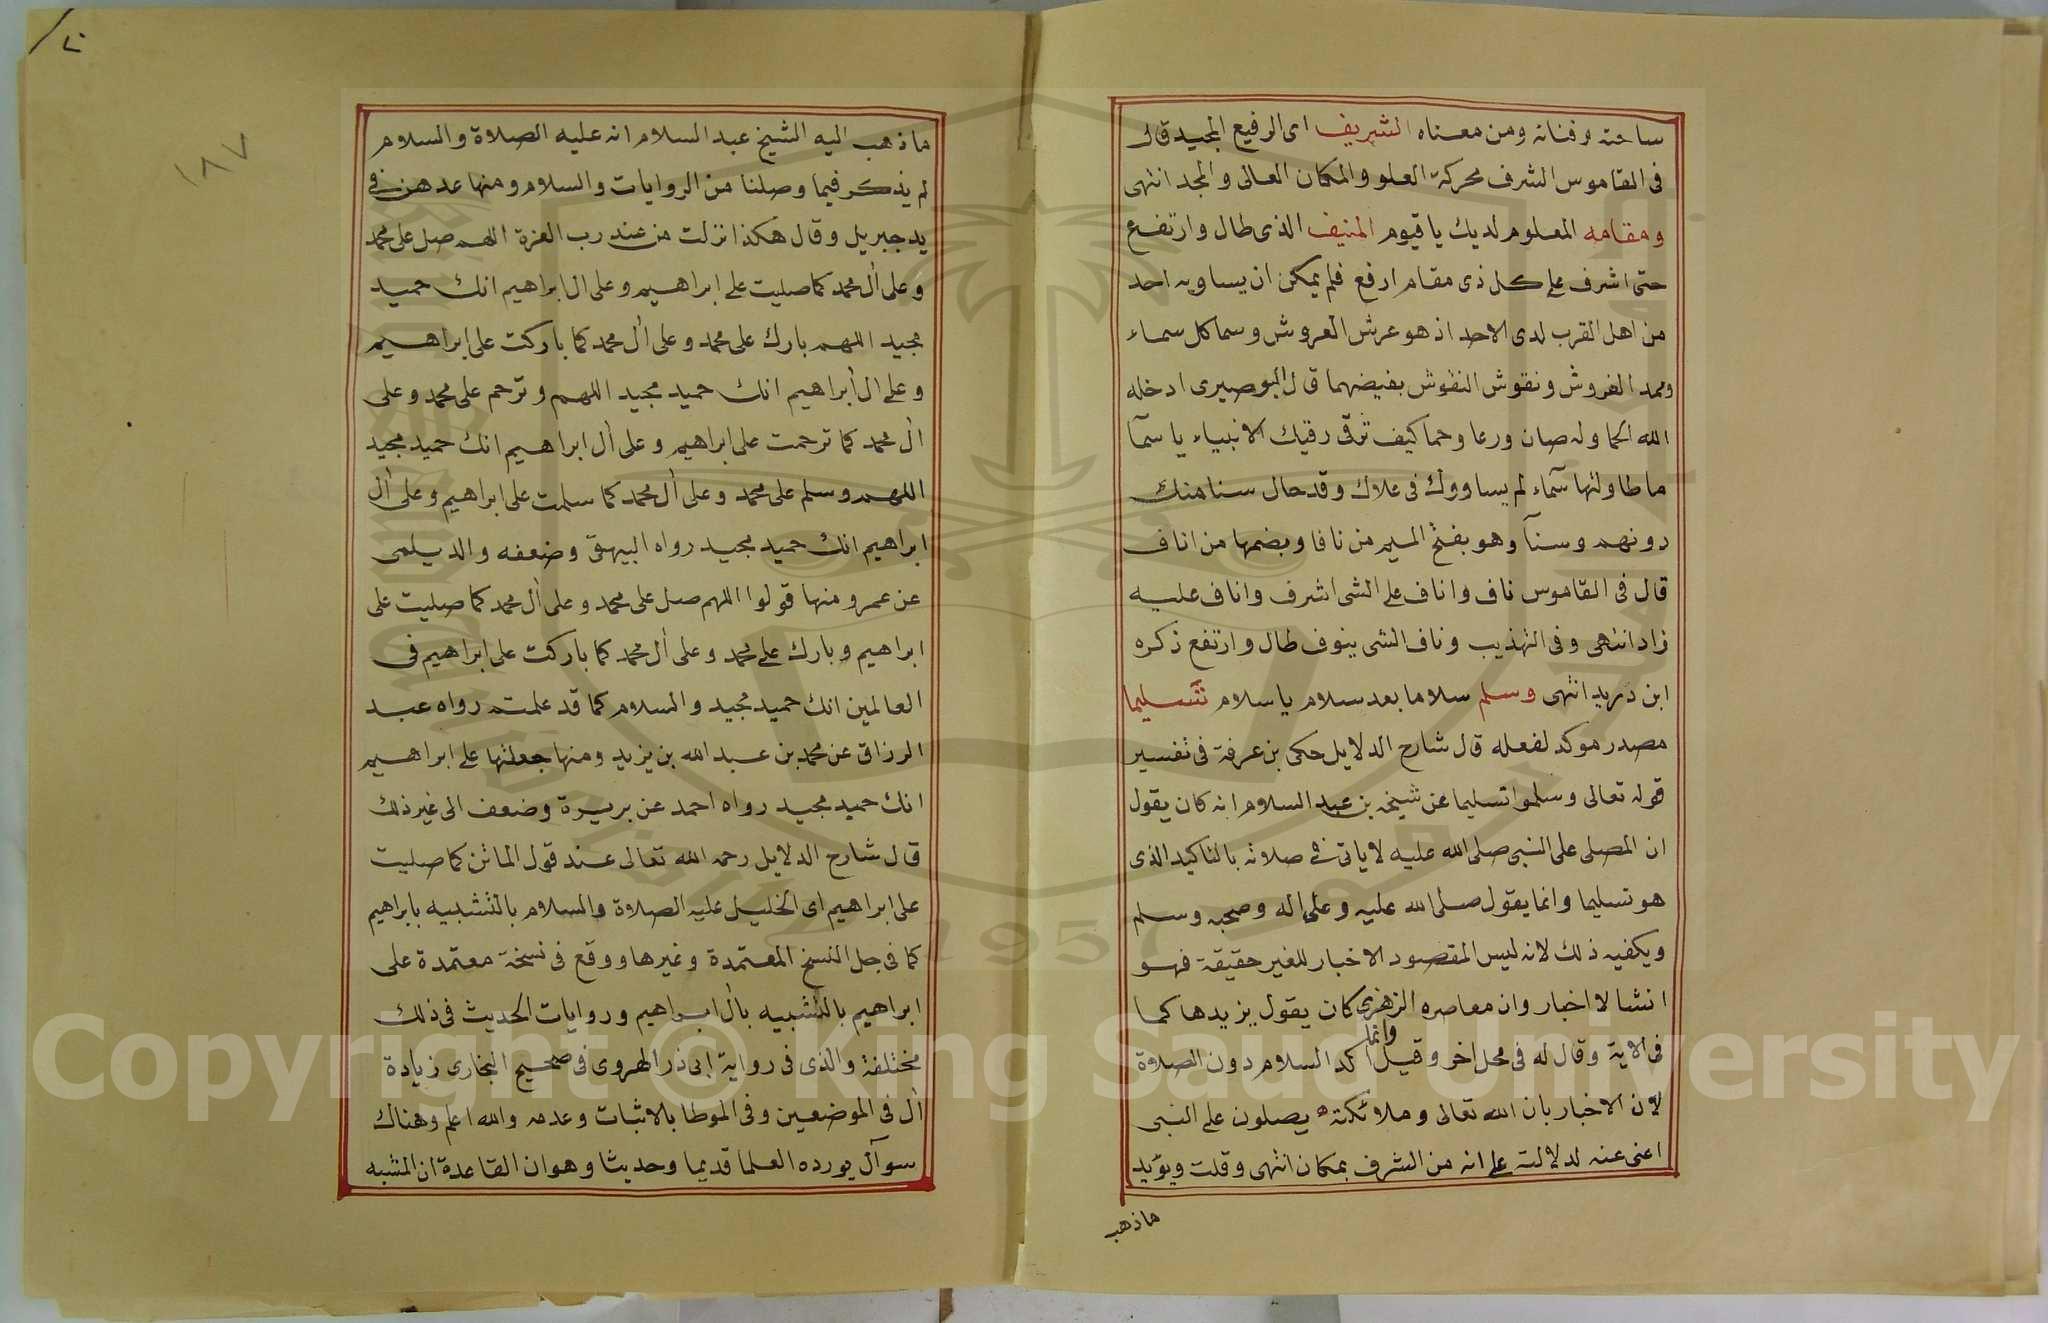 ساحته وفنائه ومن معناه الشريف اى الرفيع المجيد قال
فى القاموس الشرف محركة العلو والمكان العالى والمجد انتهى
ومقامه المعلوم لديك يا قيوم المنيف الذى طال وارتفع
حتى اشرف على كل ذى مقام ارفع فلم يمكن ان يساويه احد
من اهل القرب لدى الاحد اذ هو عرش العروش وسما كل سماء
وممد الفروش ونقوش النقوش بفيضهما قال البوصيرى ادخله
الله الحما وله صان ورعا وحما كيف ترقى رقيك الانبياء يا سمآ
ما طاولتها سمآء لم يساووك فى علاك وقد حال سنا منك
دونهم وسنآ وهو بفتح الميم من نافا وبضمها من اناف
قال فى القاموس ناف واناف على الشى اشرف واناف عليه
زاد انتهى وفى التهذيب وناف الشى ينوف طال وارتفع ذكره
ابن دريد انتهى وسلم سلاما بعد سلام يا سلام تسليما
مصدر موكد لفعله قال شارح الدلايل حكى بن عرفة فى تفسير
قوله تعالى وسلموا تسليما عن شيخه بن عبد السلام انه كان يقول
ان المصلى على النبى صلى الله عليه لا ياتى فى صلاته بالتاكيد الذى
هو تسليما وانما يقول صلى الله عليه وعلى اله وصحبه وسلم
ويكفيه ذلك لانه ليس المقصود الاخبار للغير حقيقة فهو
انشا لا اخبار وان معاصره الزهرى كان يقول يزيدها كما
فى الاية وقال له فى محل اخر وقيل وانما اكد السلام دون الصلاة
لان الاخبار بان الله تعالى وملائكته يصلون على النبى
اغنى عنه لدلالته على انه من الشرف بمكان انتهى وقلت ويؤيد
ما ذهب
١٨٧
ما ذهب اليه الشيخ عبد السلام انه عليه الصلاة والسلام
لم يذكر فيما وصلنا من الروايات والسلام ومنها عدهن فى
يد جبريل وقال هكذا نزلت من عند رب العزة اللهم صل على محمد
وعلى أل محمد كما صليت على ابراهيم وعلى ال ابراهيم انك حميد
مجيد اللهم بارك على محمد وعلى أل محمد كما باركت على ابراهيم
وعلى ال أبراهيم انك حميد مجيد اللهم وترحم على محمد وعلى
ال محمد كما ترحمت على ابراهيم وعلى أل ابراهيم انك حميد مجيد
اللهم وسلم على محمد وعلى أل محمد كما سلمت على ابراهيم وعلى أل
ابراهيم انك حميد مجيد رواه البيهقى وضعفه والديلمى
عن عمر ومنها قولوا اللهم صل على محمد وعلى أل محمد كما صليت على
ابراهيم وبارك على محمد وعلى أل محمد كما باركت على ابراهيم فى
العالمين انك حميد مجيد والسلام كما قد علمتم رواه عبد
الرزاق عن محمد بن عبد الله بن يزيد ومنها جعلتها على ابراهيم
انك حميد مجيد رواه احمد عن بريرة وضعف الى غير ذلك
قال شارح الدلايل رحمه الله تعالى عند قول الماتن كما صليت
على ابراهيم اى الخليل عليه الصلاة والسلام بالتشبيه بابراهيم
كما فى جل النسخ المعتمدة وغيرها ووقع فى نسخة معتمدة على
ابراهيم بالتشبيه بال ابراهيم وروايات الحديث فى ذلك
مختلفة والذى فى رواية ابى ذر الهروى فى صحيح البخارى زيادة
أل فى الموضعين وفى الموطا بالاثبات وعدمه والله اعلم وهناك
سوآل يورده العلما قديما وحديثا وهو ان القاعدة ان المشبه
Copyright © King Saud University
1957